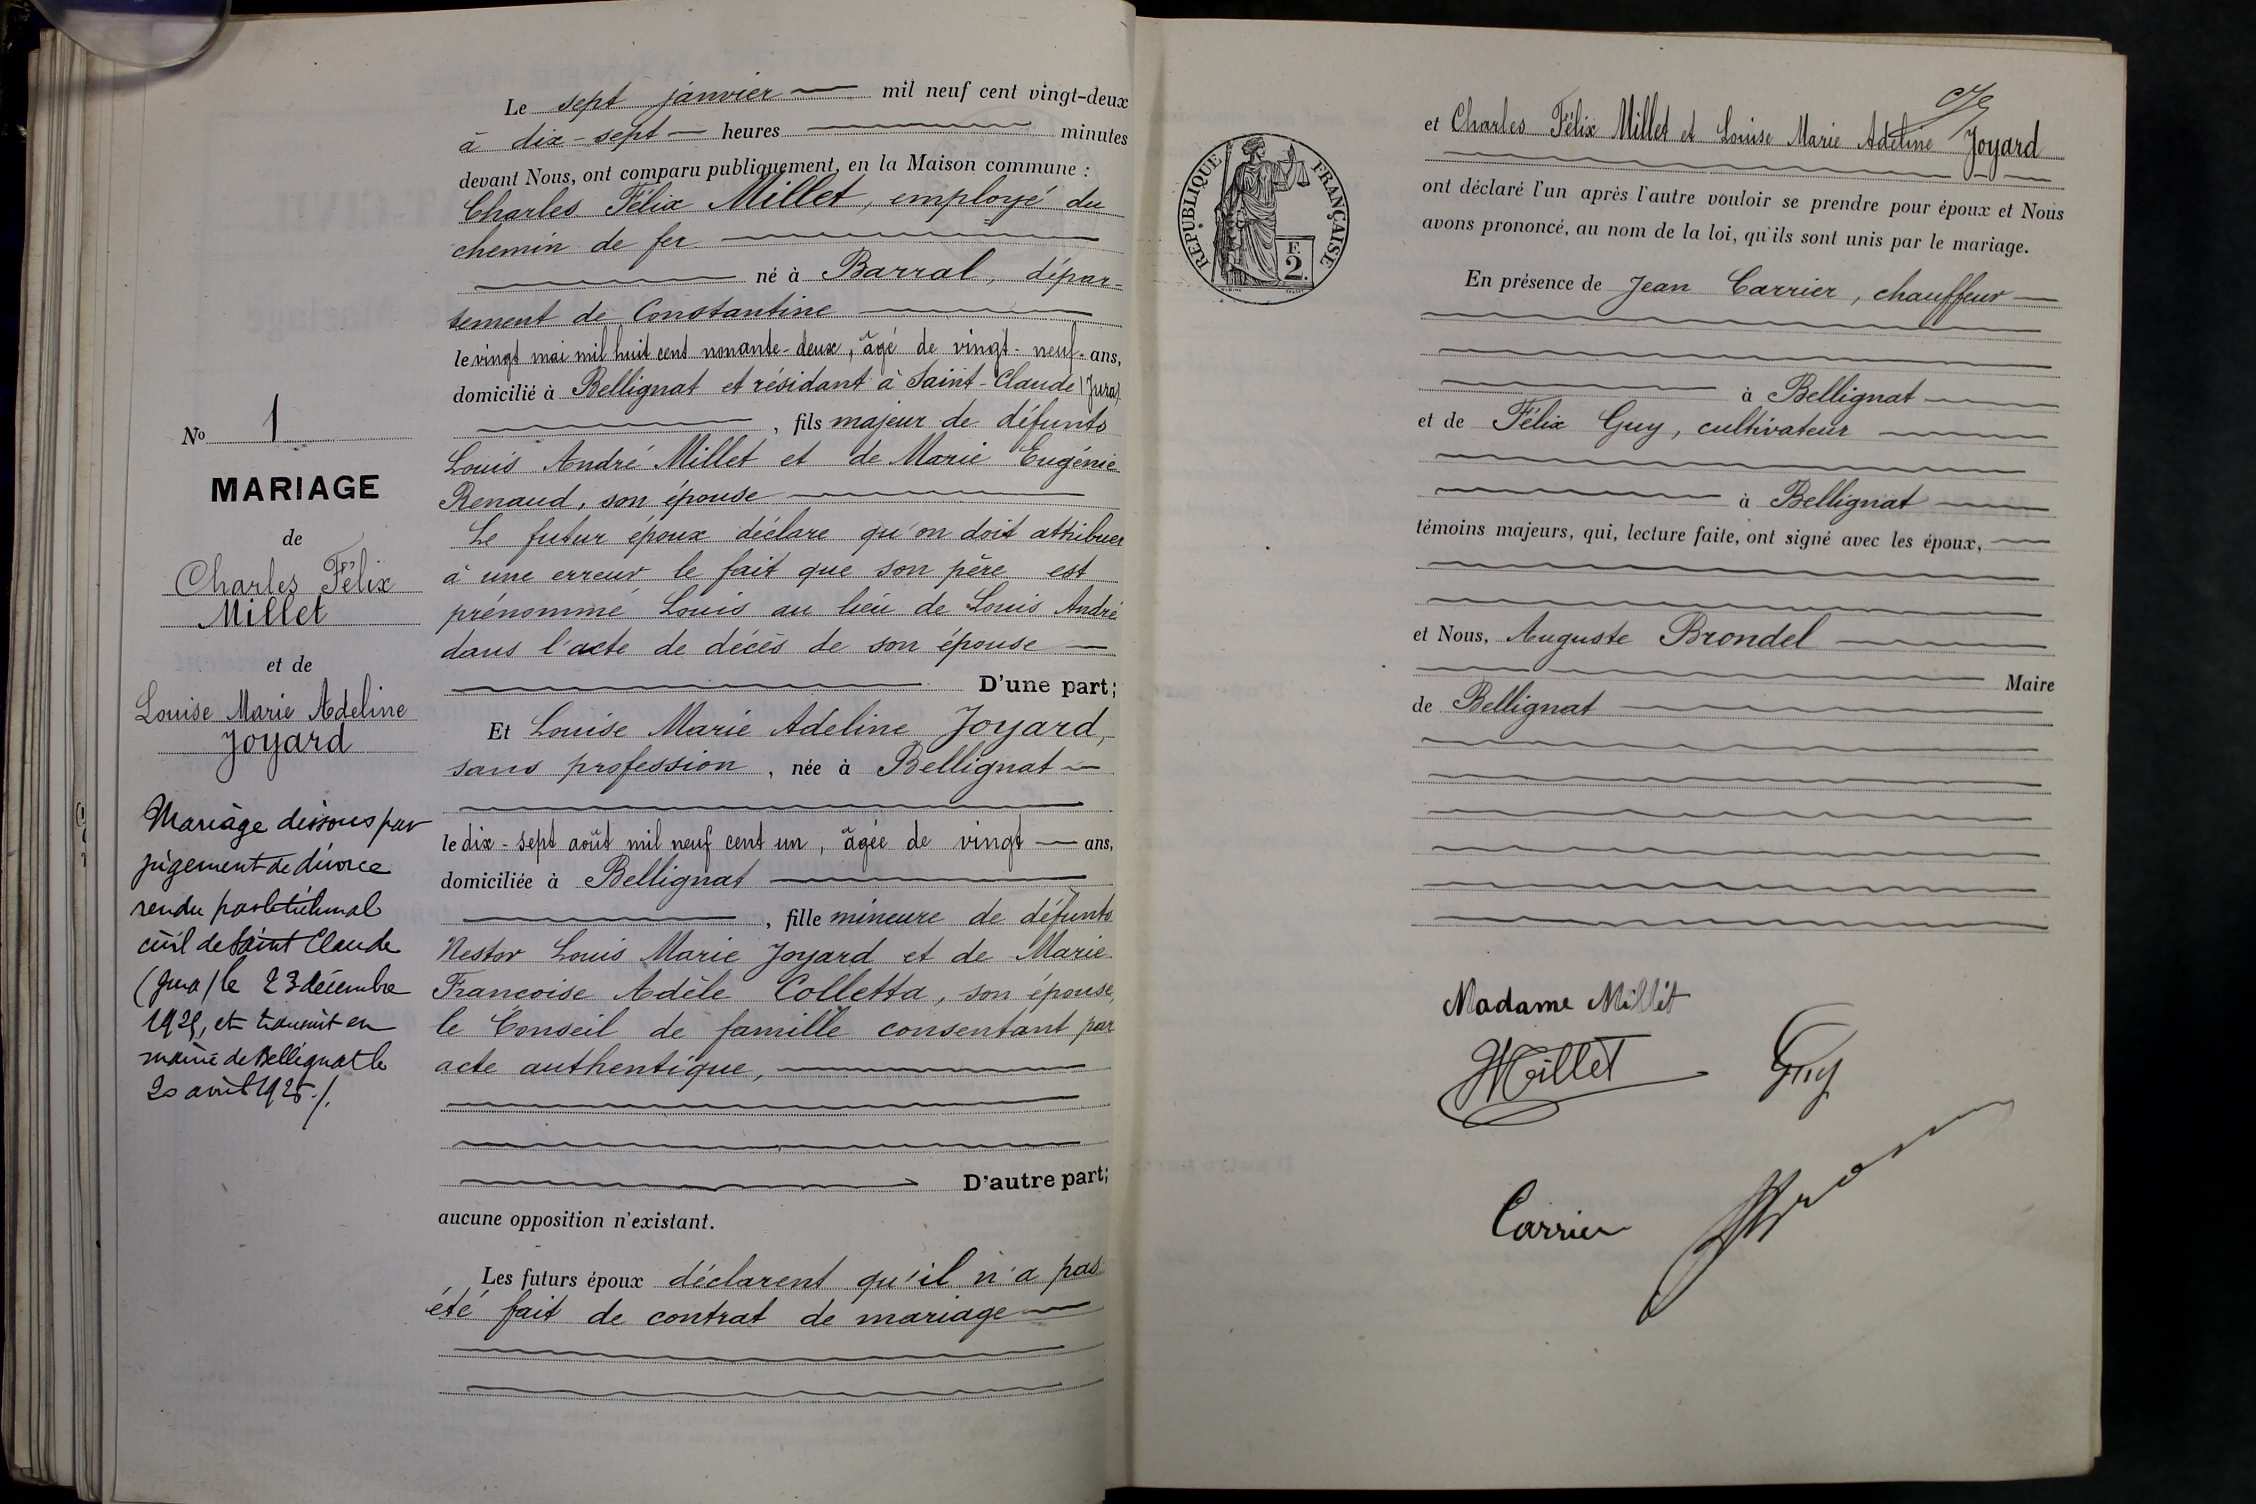 Le sept janvier mil neuf cent vingt-deux
à dix-sept heures minutes
devant Nous, ont comparu publiquement, en la Maison commune :
Charles Félix Millet, employé du
chemin de fer
né à Barral, dépar-
tement de Constantine
le vingt mai mil huit cent nonante-deux, âgé de vingt-neuf ans,
domicilié à Bellignat et résidant à Saint-Claude (Jura)
, fils majeur de défunts
Louis André Millet et de Marie Eugénie
Renaud, son épouse
Le futur époux déclare qu'on doit attribuer
à une erreur le fait que son père est
prénommé Louis au lieu de Louis André
dans l'acte de décès de son épouse
D'une part;
Et Louise Marie Adeline Joyard,
sans profession, née à Bellignat
le dix-sept août mil neuf cent un, âgée de vingt ans,
domiciliée à Bellignat
, fille mineure de défunts
Nestor Louis Marie Joyard et de Marie
Francoise Adèle Colletta, son épouse,
le Conseil de famille consentant par
acte authentique,
D'autre part;
aucune opposition n'existant.
Les futurs époux déclarent qu'il n'a pas
été fait de contrat de mariage
No 1
MARIAGE
de
Charles Félix
Millet
et de
Louise Marie Adeline
Joyard
Mariage dissous par
jugement de divorce
rendu par le tribunal
civil de Saint Claude
(Jura) le 23 décembre
et transcrit en
mairie de Bellignat le
20 avril 1925./.
RÉPUBLIQUE FRANÇAISE
F.
2.
et Charles Félix Millet et Louise Marie Adeline Joyard
ont déclaré l'un après l'autre vouloir se prendre pour époux et Nous
avons prononcé, au nom de la loi, qu'ils sont unis par le mariage.
En présence de Jean Carrier, chauffeur
à Bellignat
et de Félix Guy, cultivateur
à Bellignat
témoins majeurs, qui, lecture faite, ont signé avec les époux,
et Nous, Auguste Brondel
Maire
de Bellignat
Madame Millet
Millet Guy
Carrier